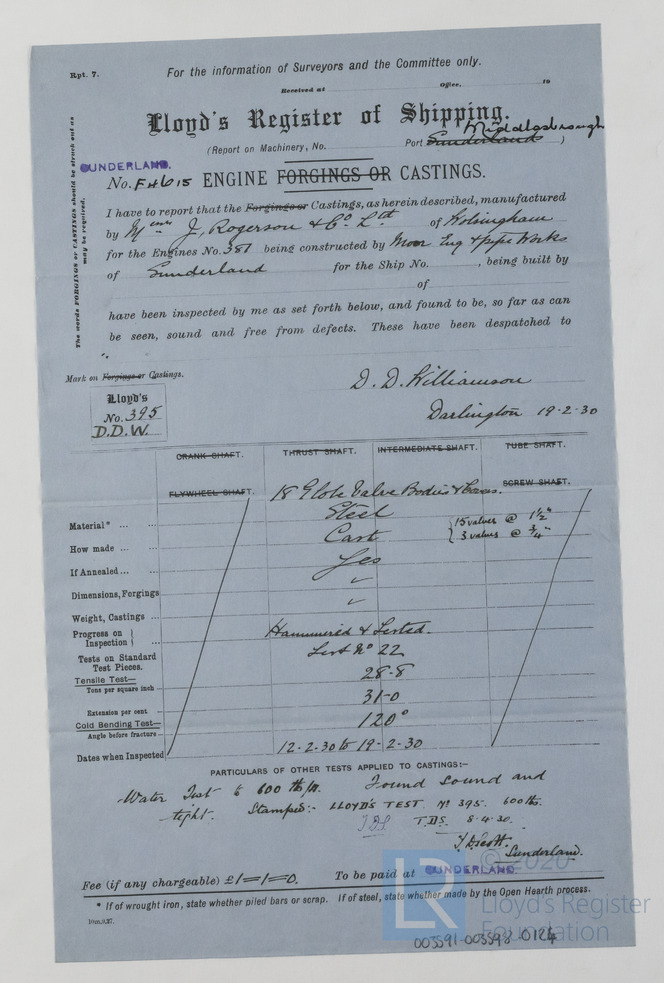 Rpt. 7.
For the information of Surveyors and the Committee only.
Received at Office. 19
Lloyd's Register of Shipping.
Middlesbrough
(Report on Machinery, No. Port Sunderland )
SUNDERLAND.
No. FH615 ENGINE FORGINGS OR CASTINGS.
The words FORGINGS or CASTINGS should be struck out as may be required.
I have to report that the Forgings or Castings, as herein described, manufactured
by Messrs J. Rogerson & Co. Ltd of Wolsingham
for the Engines No. 381 being constructed by Moor Eng & pipe Works
of Sunderland for the Ship No. , being built by
of
have been inspected by me as set forth below, and found to be, so far as can
be seen, sound and free from defects. These have been despatched to
Mark on Forgings or Castings.
Lloyd's
No. 395
D.D.W.
D. D. Williamson
Darlington 19-2-30
CRANK SHAFT. THRUST SHAFT. INTERMEDIATE SHAFT. TUBE SHAFT.
FLYWHEEL SHAFT. 18 Globe Valve Bodies & Covers. SCREW SHAFT.
Material* ... ... Steel 15 valves @ 1½"
How made ... ... Cast 3 valves @ ¾"
If Annealed ... ... Yes
Dimensions, Forgings ✓
Weight, Castings ... ✓
Progress on Inspection } ... Hammered & Tested.
Tests on Standard Test Pieces. Test No 22
Tensile Test—
Tons per square inch ... 28-8
Extension per cent 31-0
Cold Bending Test—
Angle before fracture... 120°
Dates when Inspected 12-2-30 to 19-2-30
PARTICULARS OF OTHER TESTS APPLIED TO CASTINGS:—
Water Test to 600 lb/in. Found sound and
tight. Stamped:- LLOYD'S TEST No 395. 600 lbs.
T.D.S. T.D.S. 8-4-30.
T. D. Scott.
Sunderland.
Fee (if any chargeable) £1=1=0. To be paid at SUNDERLAND.
* If of wrought iron, state whether piled bars or scrap. If of steel, state whether made by the Open Hearth process.
10m,9,27.
© 2020
LR
Lloyd's Register
Foundation
003591-003598-0124